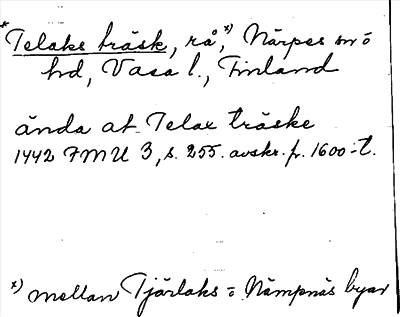 *Telaks träsk, rå,*) Närpes sn o
hd, Vasa l., Finland
ända at Telax träske
1442 FMU 3, s. 255. avskr. fr. 1600-t.
*) mellan Tjärlaks o Nämpnäs byar